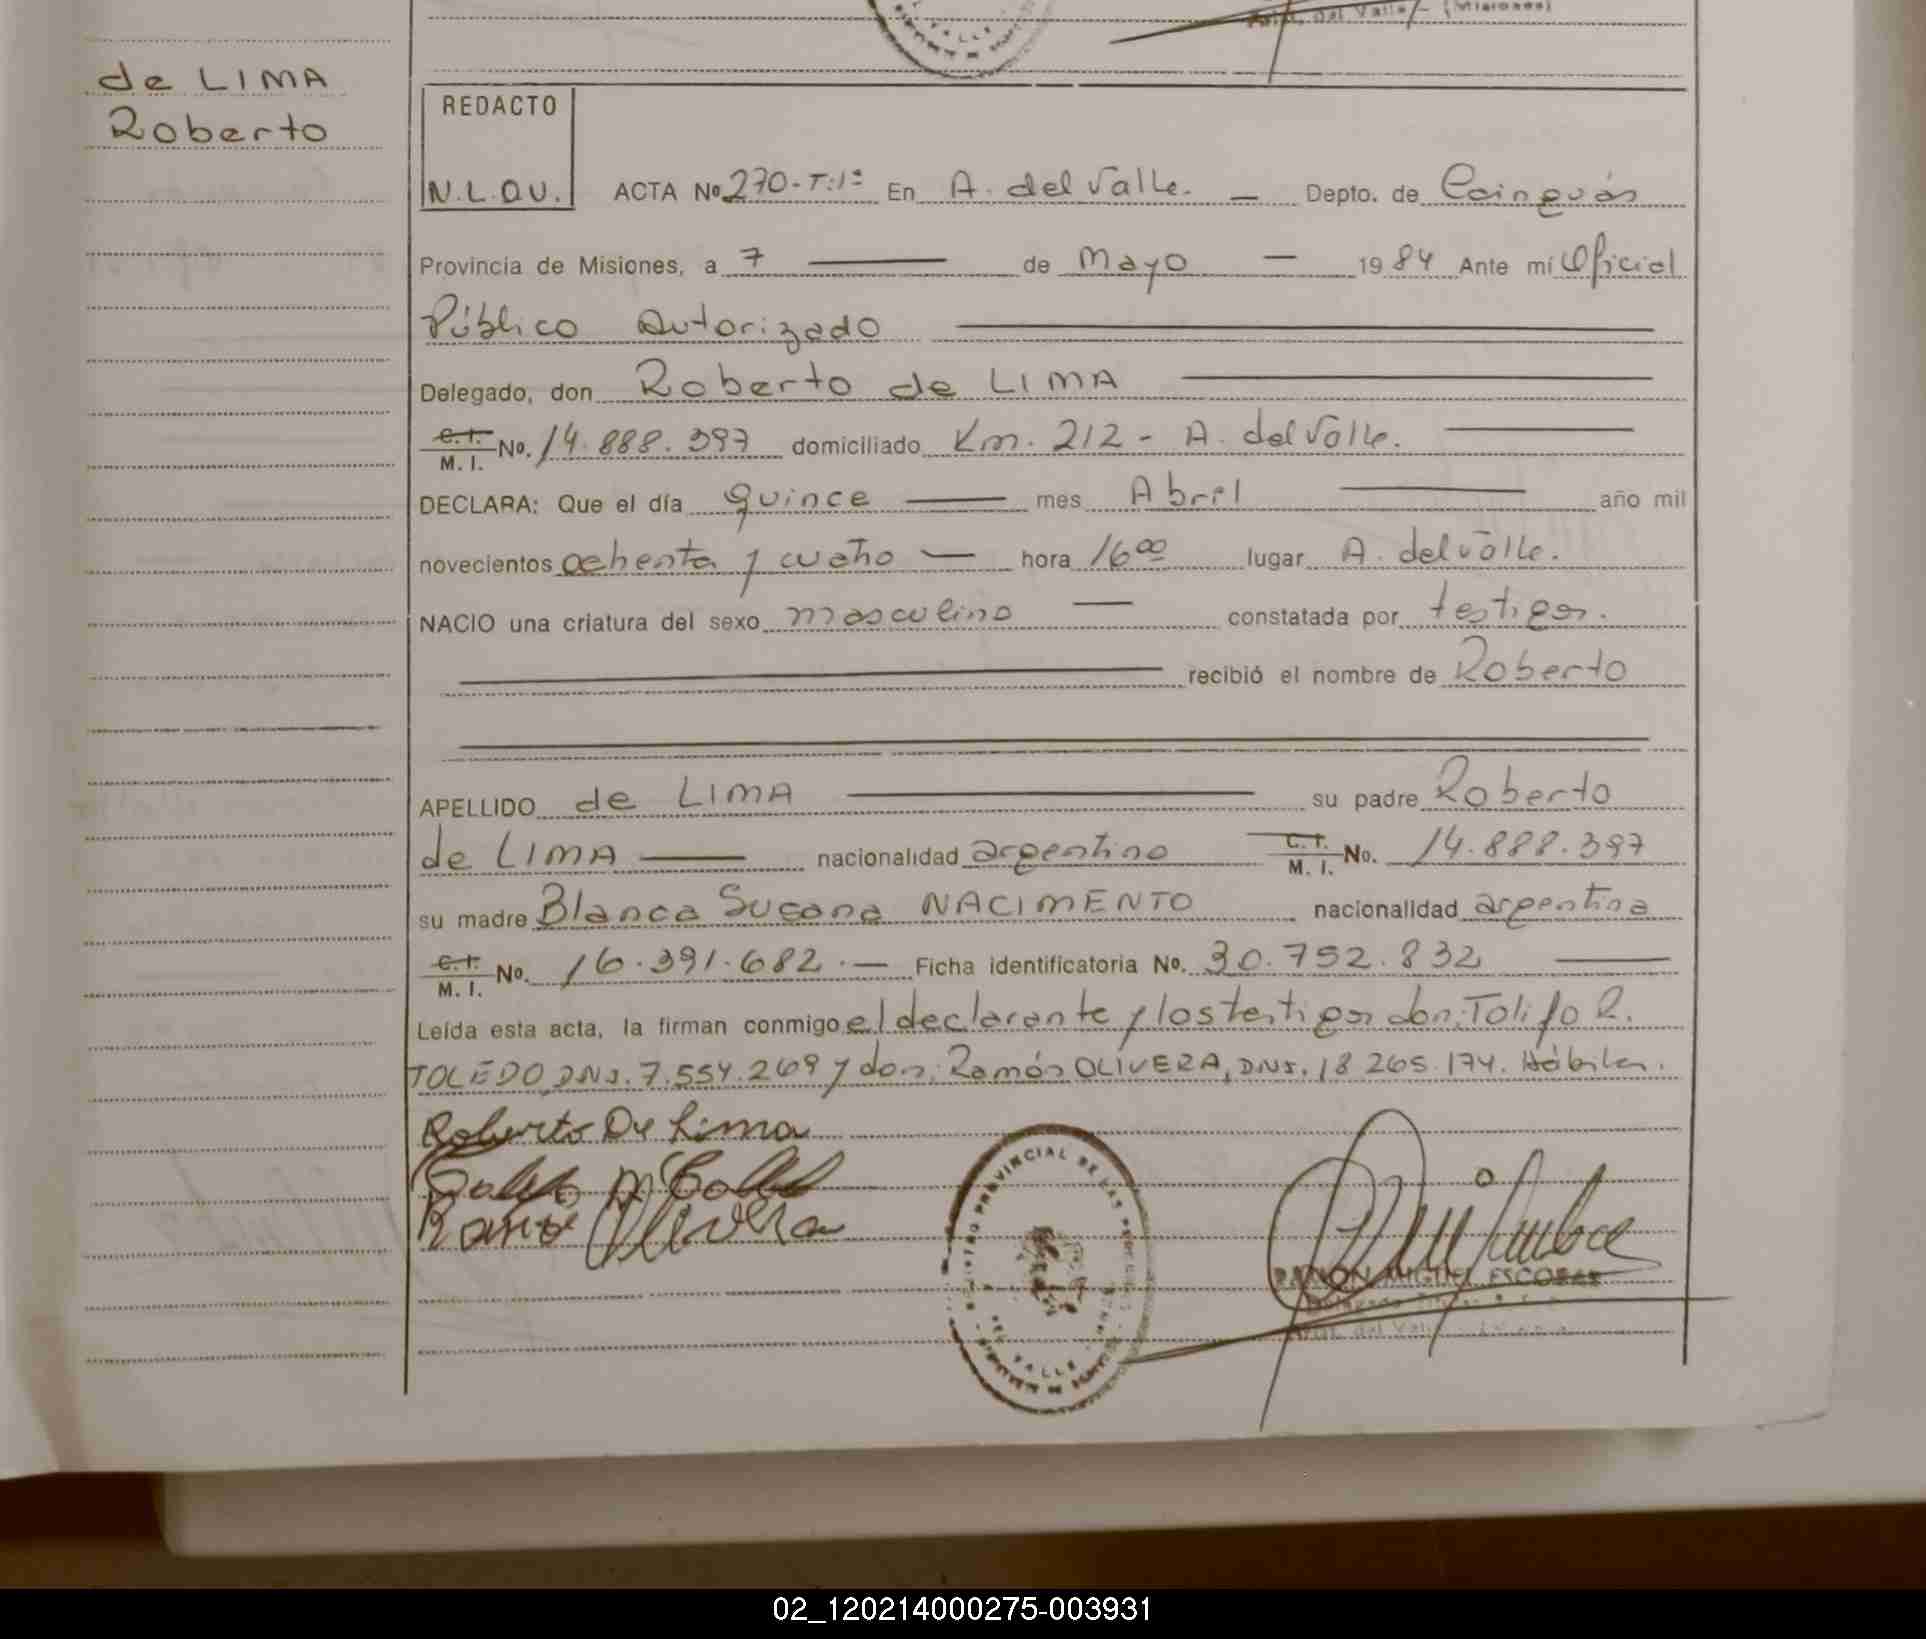 de LIMA
Roberto
Valle
Aristo. del Valle - (Misiones)
REDACTO
N.L.QU.
ACTA Nº 270-T:1º En A. del Valle. — Depto. de Cainguás
Provincia de Misiones, a 7 — de Mayo — 1984 Ante mí Oficial
Público Autorizado
Delegado, don Roberto de LIMA
C.I. M.I. No. 14.888.397 domiciliado Km. 212 - A. del Valle.
DECLARA: Que el día quince — mes Abril — año mil
novecientos ochenta y cuatro — hora 16⁰⁰ lugar A. del valle.
NACIO una criatura del sexo masculino — constatada por testigos.
recibió el nombre de Roberto
APELLIDO de LIMA — su padre Roberto
de LIMA — nacionalidad argentino C.I. M.I. No. 14.888.397
su madre Blanca Susana NACIMENTO nacionalidad argentina
C.I. M.I. No. 16.391.682.— Ficha identificatoria No. 30.752.832 —
Leída esta acta, la firman conmigo el declarante y los testigos don: Tolifo R.
TOLEDO, DNI. 7.554.269 y don: Ramón OLIVERA, DNI. 18 265.174. Hábiles.
Roberto De Lima
Ramon Olivera
REGISTRO PROVINCIAL DE LAS PERSONAS
DEL VALLE
RAMON MIGUEL ESCOBAR
Delegado Titular
Arist. del Valle
02_120214000275-003931